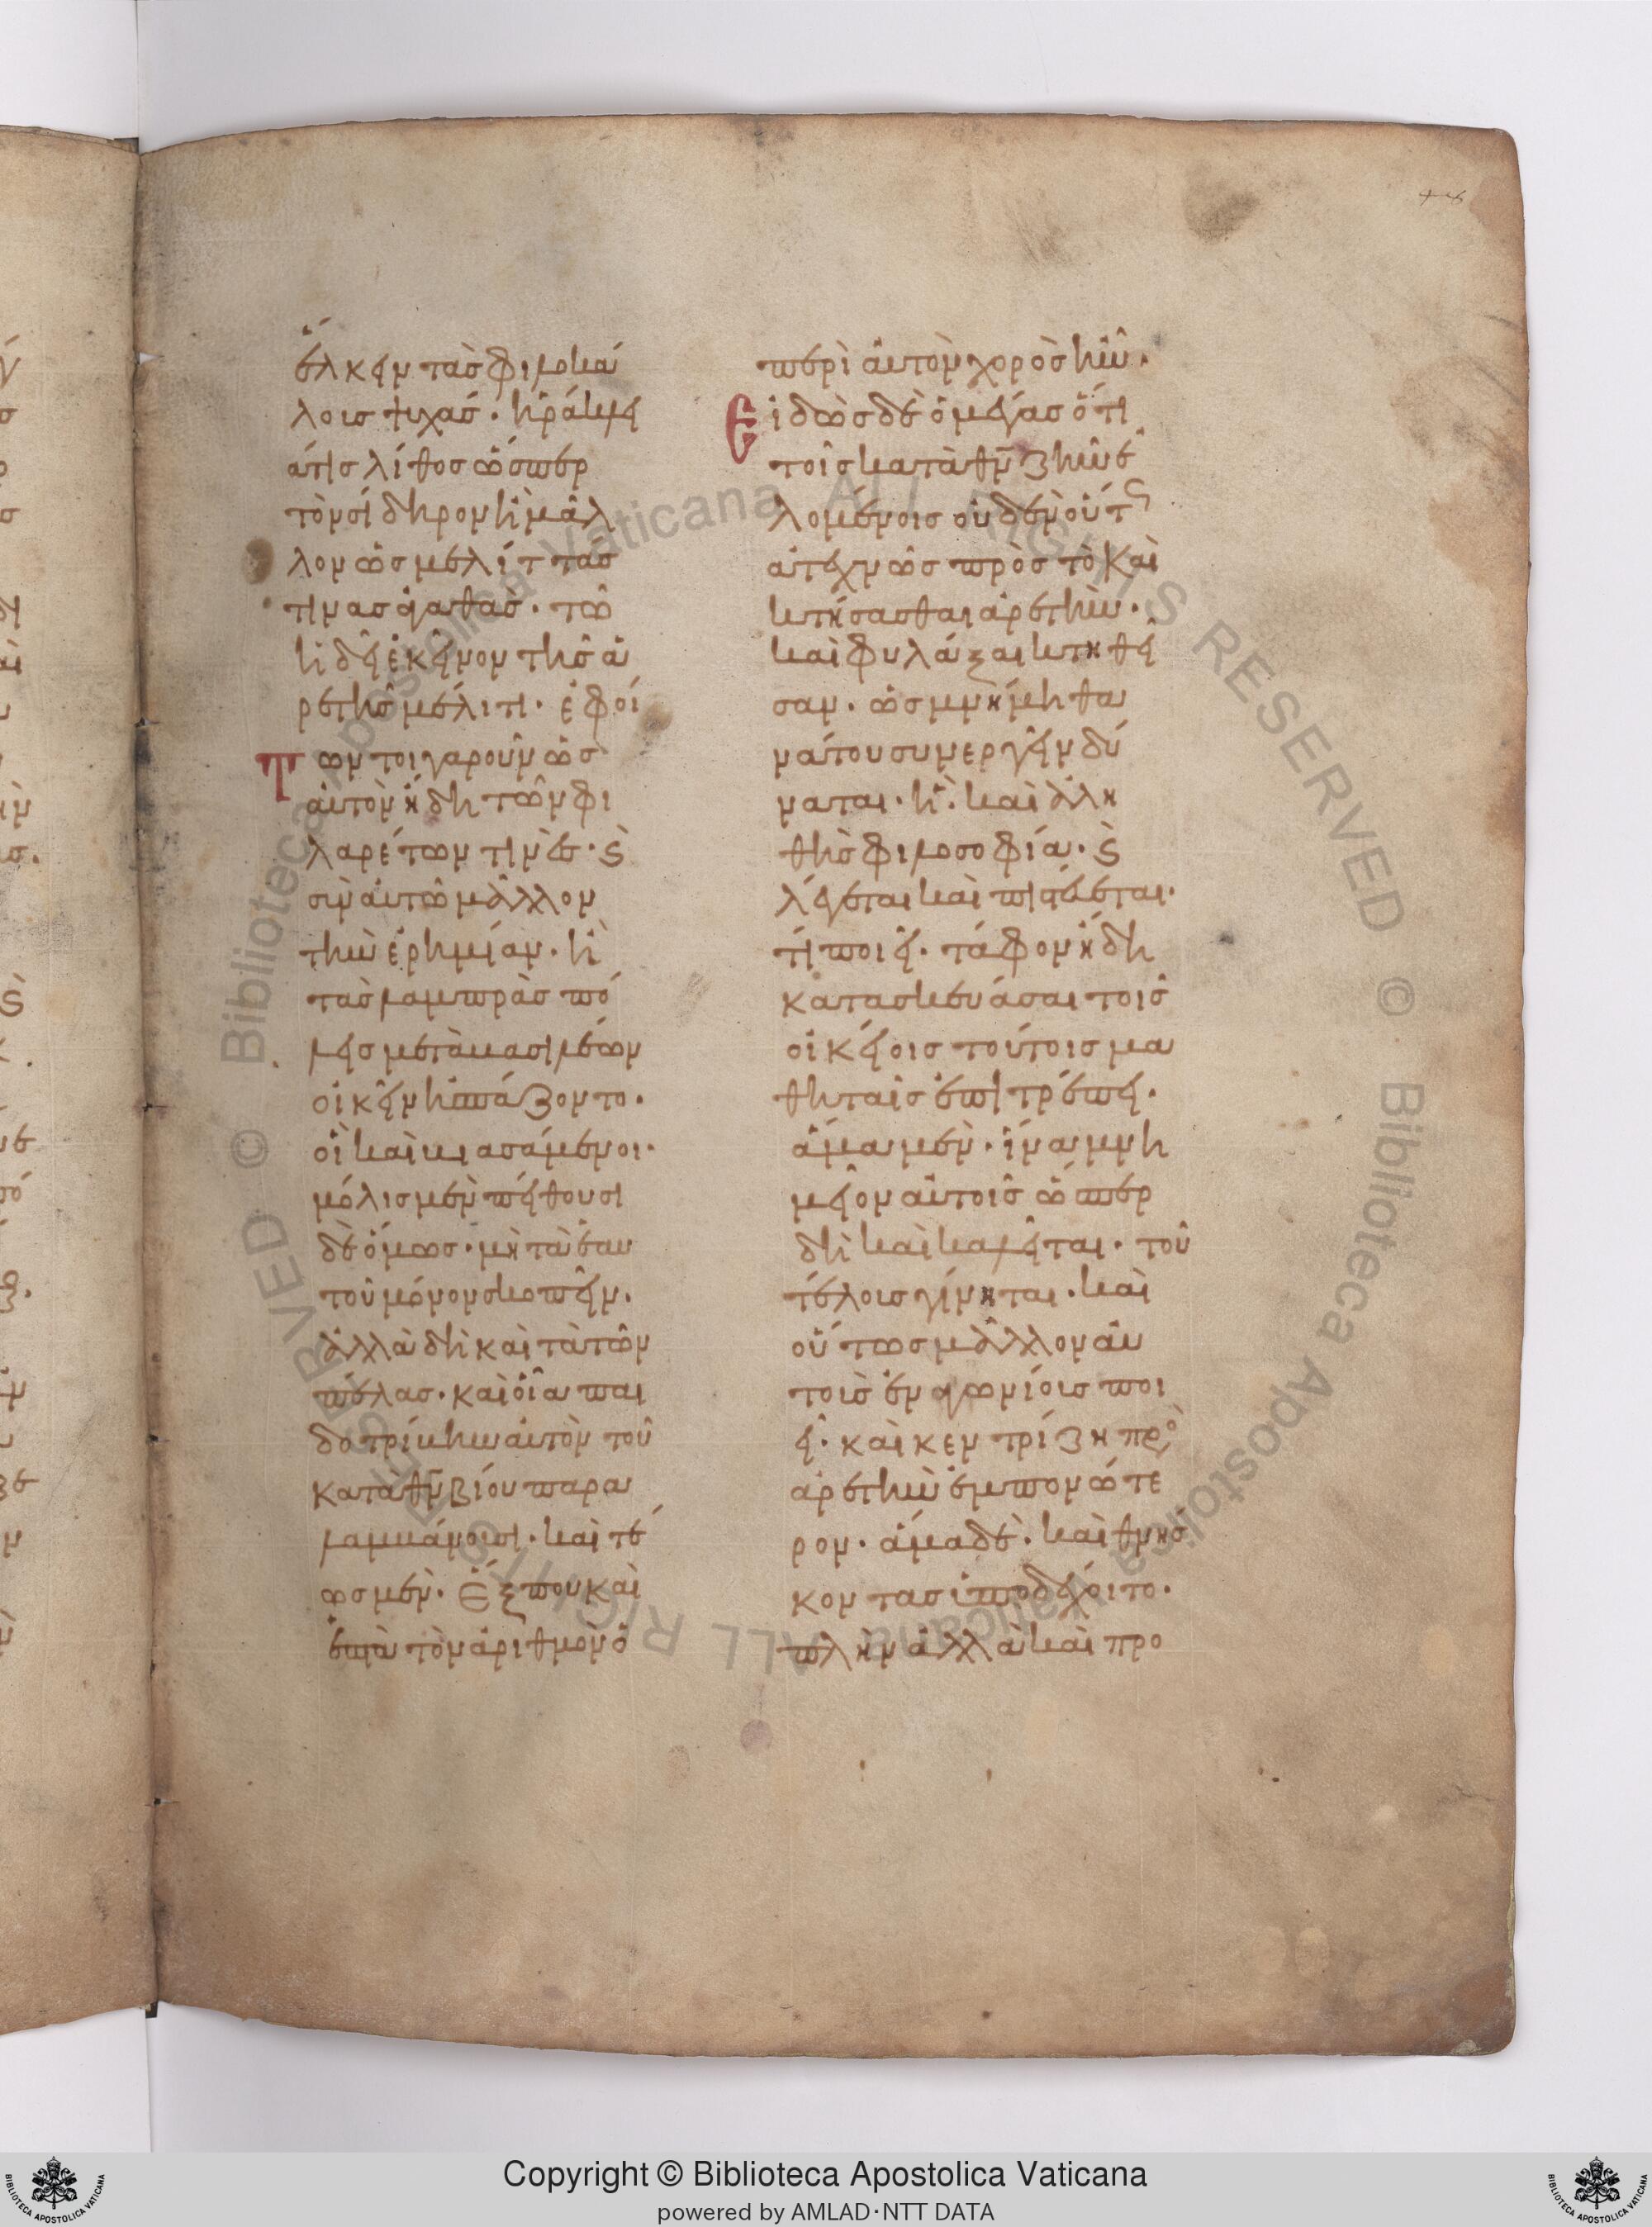 ἕλκειν τὰς φιλοκά
λοις ψυχάς· ἢ ῥάμνει
ά τις λίθος ὥσπερ
τὸν σίδηρον ἢ μᾶλ
λον ὡς μελίττας
τινας ἀγαθὰς· τῶ
ἡδεῖ ἐκεῖνον τῆς ἀ
ρετῆς μέλιτι· ἐφοί
Των τοιγαροῦν ὡς
αὐτὸν ἤδη τῶν φι
λαρέτων τινὲς· καὶ
σὺν αὐτῶ μᾶλλον
τὴν ἐρημίαν· ἢ
τὰς λαμπρὰς πό
λεις μετὰ βασιλέων
οἰκεῖν ἠσπάζοντο·
οἳ καὶ βιασάμενοι·
μόλις μὲν πείθουσι
δὲ ὅμως· μὴ τὰ ἑαυ
τοῦ μόνον σκοπεῖν·
ἀλλὰ δὴ καὶ τὰ τῶν
πέλας· καὶ οἷα παι
δοτρίβην αὐτὸν τοῦ
κατὰ θν βίου παρα
λαμβάνουσι· καὶ τέ
ως μὲν· ἓξ που καὶ
ἑπτὰ τὸν ἀριθμὸν ὁ
περὶ αὐτὸν χορὸς ἦν·
Εἰδὼς δὲ ὁ μέγας ὅτι
τοῖς κατὰ θν ζῆν ἐ
λομένοις οὐδὲν οὕτως
ἀτεχνῶς πρὸς τὸ καὶ
κτήσασθαι ἀρετὴν·
καὶ φυλάξαι κτηθεῖ
σαν· ὡς μνήμη θα
νάτου συνεργεῖν δύ
ναται· ἣ· καὶ ἀλη
θὴς φιλοσοφία· καὶ
λέγεται καὶ πιστεύεται·
τί ποιεῖ· τάφον ἤδη
κατασκευάσαι τοῖς
οἰκείοις τούτοις μα
θηταῖς ἐπιτρέπει·
ἅμα μὲν· ἵνα μνη
μεῖον αὐτοῖς ὥσπερ
δὴ καὶ καλεῖται· τοῦ
τέλους γίνηται· καὶ
οὕτως μᾶλλον αὐ
τοὺς ἐναγωνίους ποι
εῖ· καὶ κεντρίζη πρὸ
ἀρετὴν ἐμπονώτε
ρον· ἅμα δὲ· καὶ θνήσ
κοντας ὑποδέχοιτο·
πλὴν ἀλλὰ καὶ προ
Copyright © Biblioteca Apostolica Vaticana
powered by AMLAD·NTT DATA